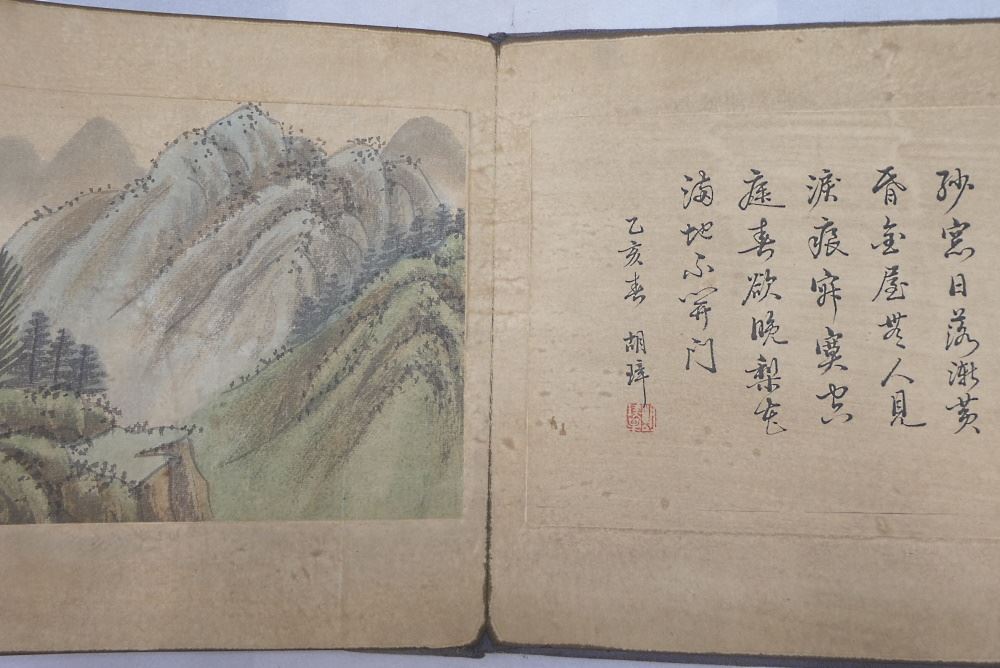 紗窓日落漸黃
昏金屋無人見
淚痕寂寞空
庭春欲晚梨花
滿地不開門
乙亥春 胡璋